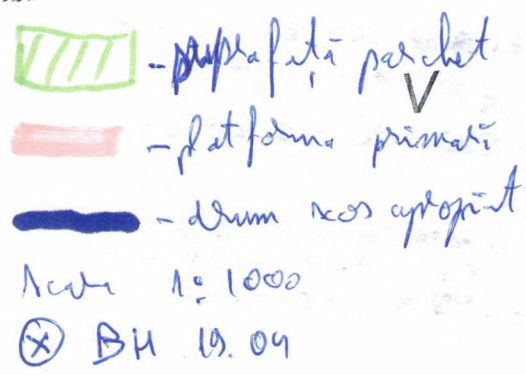 - suprafață parchet
V
- platforma primară
- drum scos apropiat
Scara 1:1000
X BH 19.04